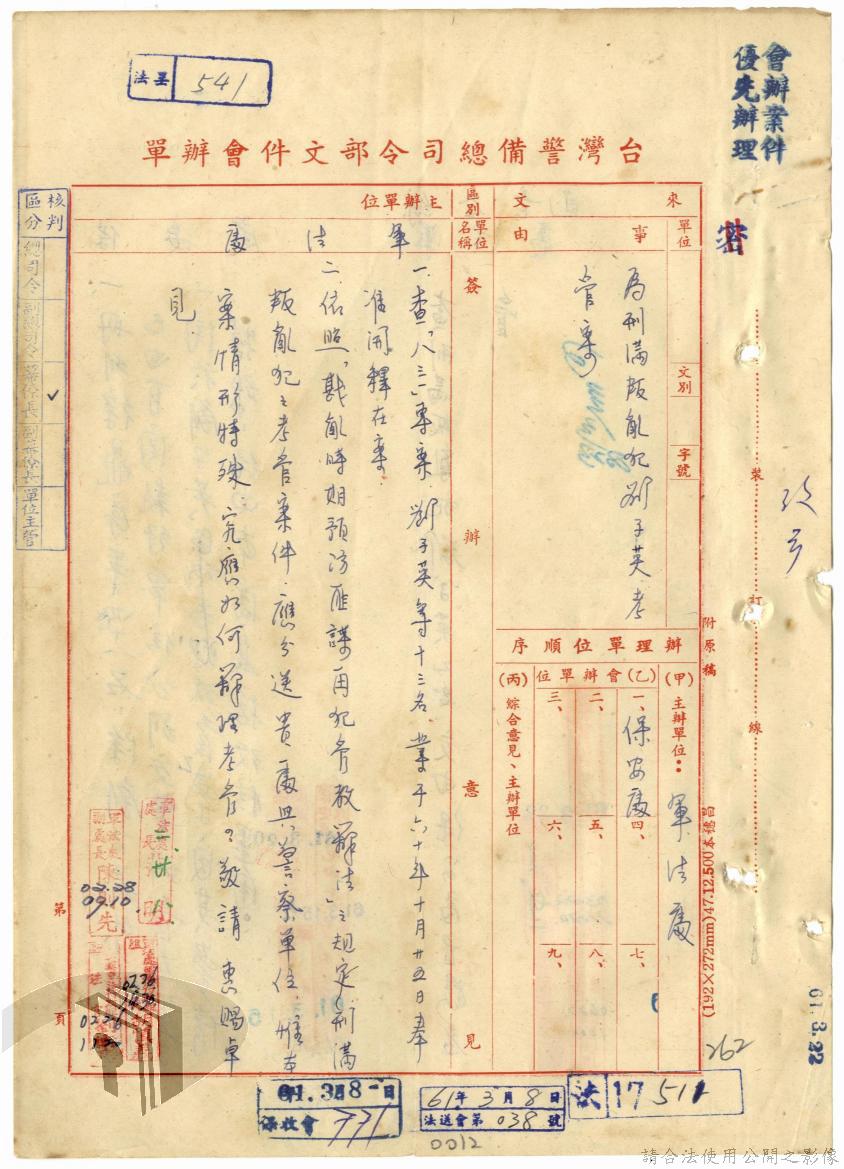 會辦案件
優先辦理
法呈 541
台灣警備總司令部文件會辦單
密
來文
單位
文別
字號
事由
為刑滿叛亂犯劉子英考
管案
附原稿
辦理單位順序
(甲)主辦單位：軍法處
(乙)會辦單位
一、保安處
二、
三、
四、
五、
六、
七、
八、
九、
(丙)綜合意見、主辦單位
區別
單位名稱
主辦單位
軍法處
簽辦意見
一、查「八三一」專案劉子英等十三名，業于六十年十月廿五日奉
准開釋在案。
二、依照「戡亂時期預防匪諜再犯管教辦法」之規定刑滿
叛亂犯之考管案件，應分送貴處與警察單位，惟本
案情形特殊，究應如何辦理考管？敬請惠賜卓
見
核判區分
總司令
副總司令
參謀長
✓
副參謀長
單位主管
裝
訂
線
(192×272mm)47.12.500本總昌
61.3.22
262
第
頁
處長
三廿八
副處長
02.28
09.10
02.26
61.3.8日
保收會 771
61年3月8日
法送會第038號
法 17511
0012
請合法使用公開之影像